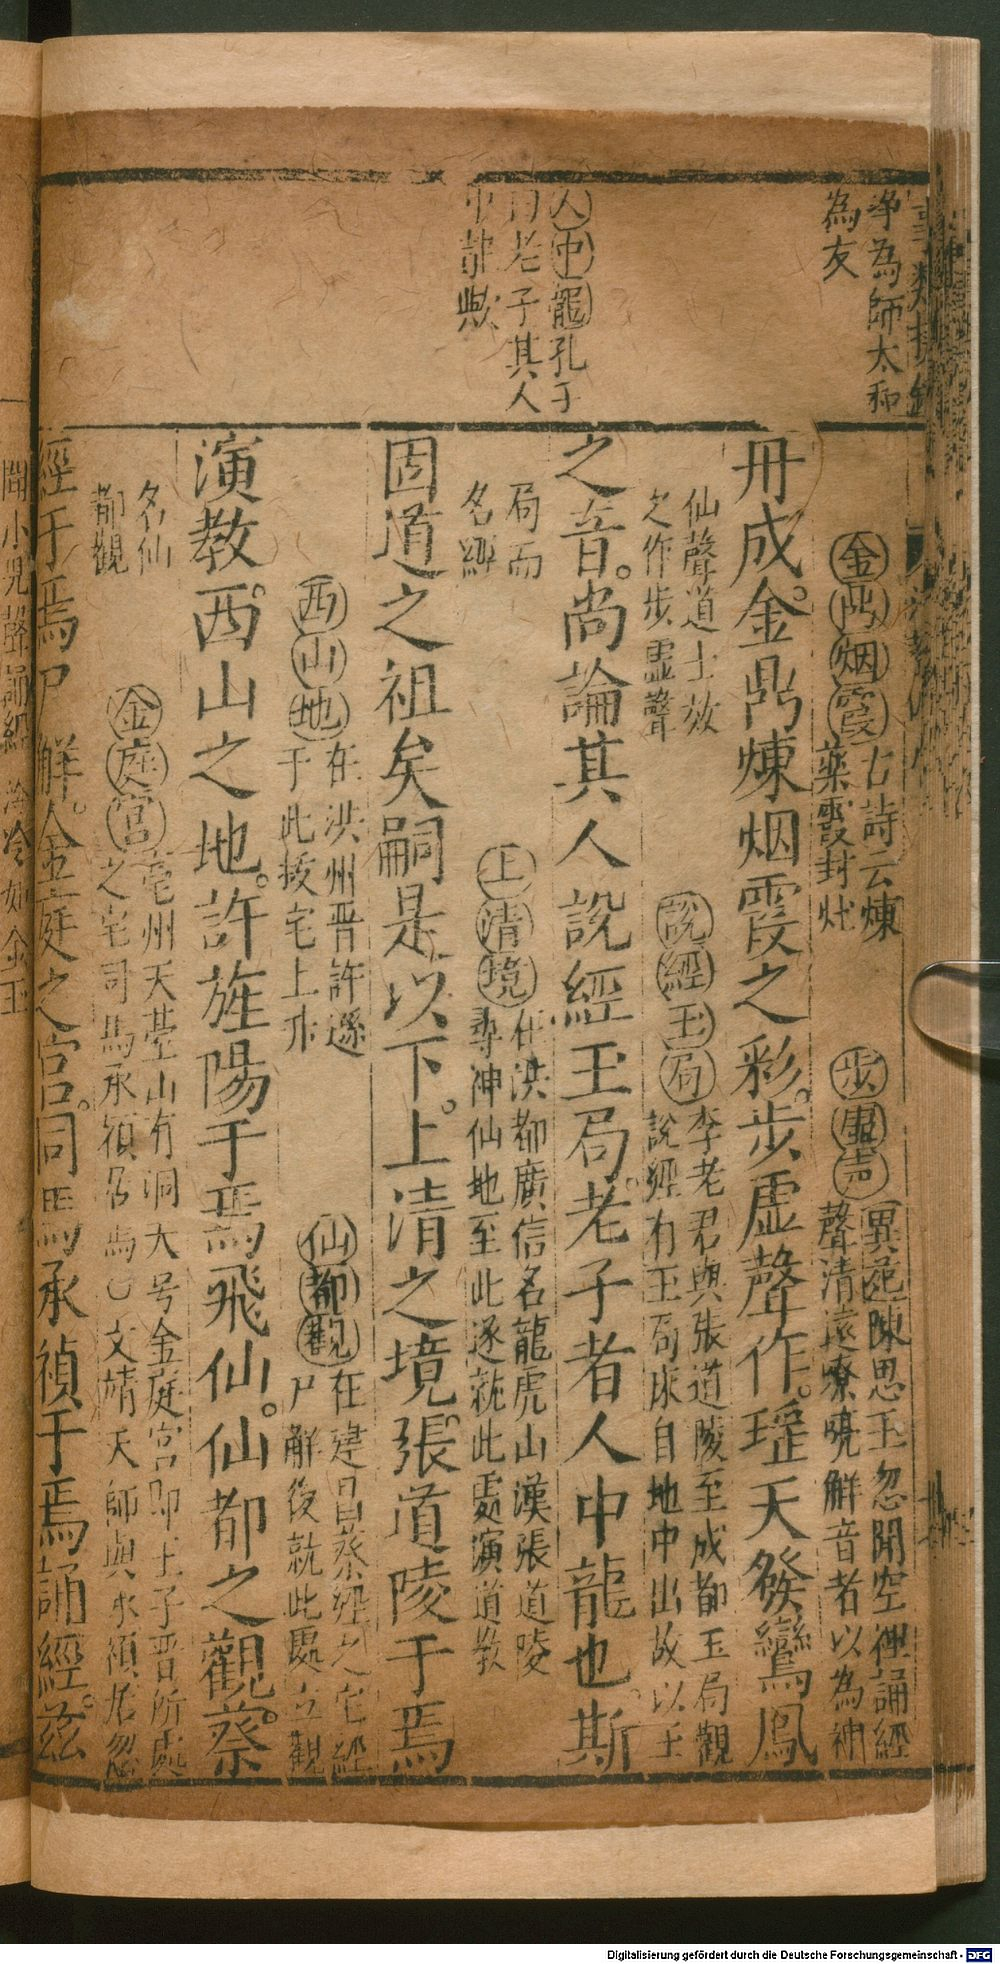 淨為師太和
為友
人中龍孔子
曰老子其人
中龍歟
金鼎烟霞古詩云煉
藥雲封灶
步虛声異苑陳思王忽聞空裡誦經
聲清遠嘹喨解音者以為神
丹成。金鼎煉烟霞之彩。步虛聲作。瑤天發鸞鳳
仙聲道士效
之作步虛聲
說經玉局李老君與張道陵至成都玉局觀
說經有玉局床自地中出故以玉
之音。尚論其人說經玉局。老子者人中龍也。斯
局而
名經
上清境在洪都廣信名龍虎山漢張道陵
尋神仙地至此遂就此處演道教
固道之祖矣嗣是以下。上清之境。張道陵于焉
西山地在洪州晋許遜
于此拔宅上升
仙都觀在建昌蔡經之宅經
尸解後就此處立觀
演教。西山之地。許旌陽于焉飛仙。仙都之觀。蔡
名仙
都觀
金庭宮亳州天臺山有洞大号金庭宮即王子晋所處
之宅司馬承禎居焉文靖天師與承禎居忽
經于焉尸解。金庭之宮。司馬承禎于焉誦經。茲
聞小児聲誦經冷冷如金玉
Digitalisierung gefördert durch die Deutsche Forschungsgemeinschaft - DFG